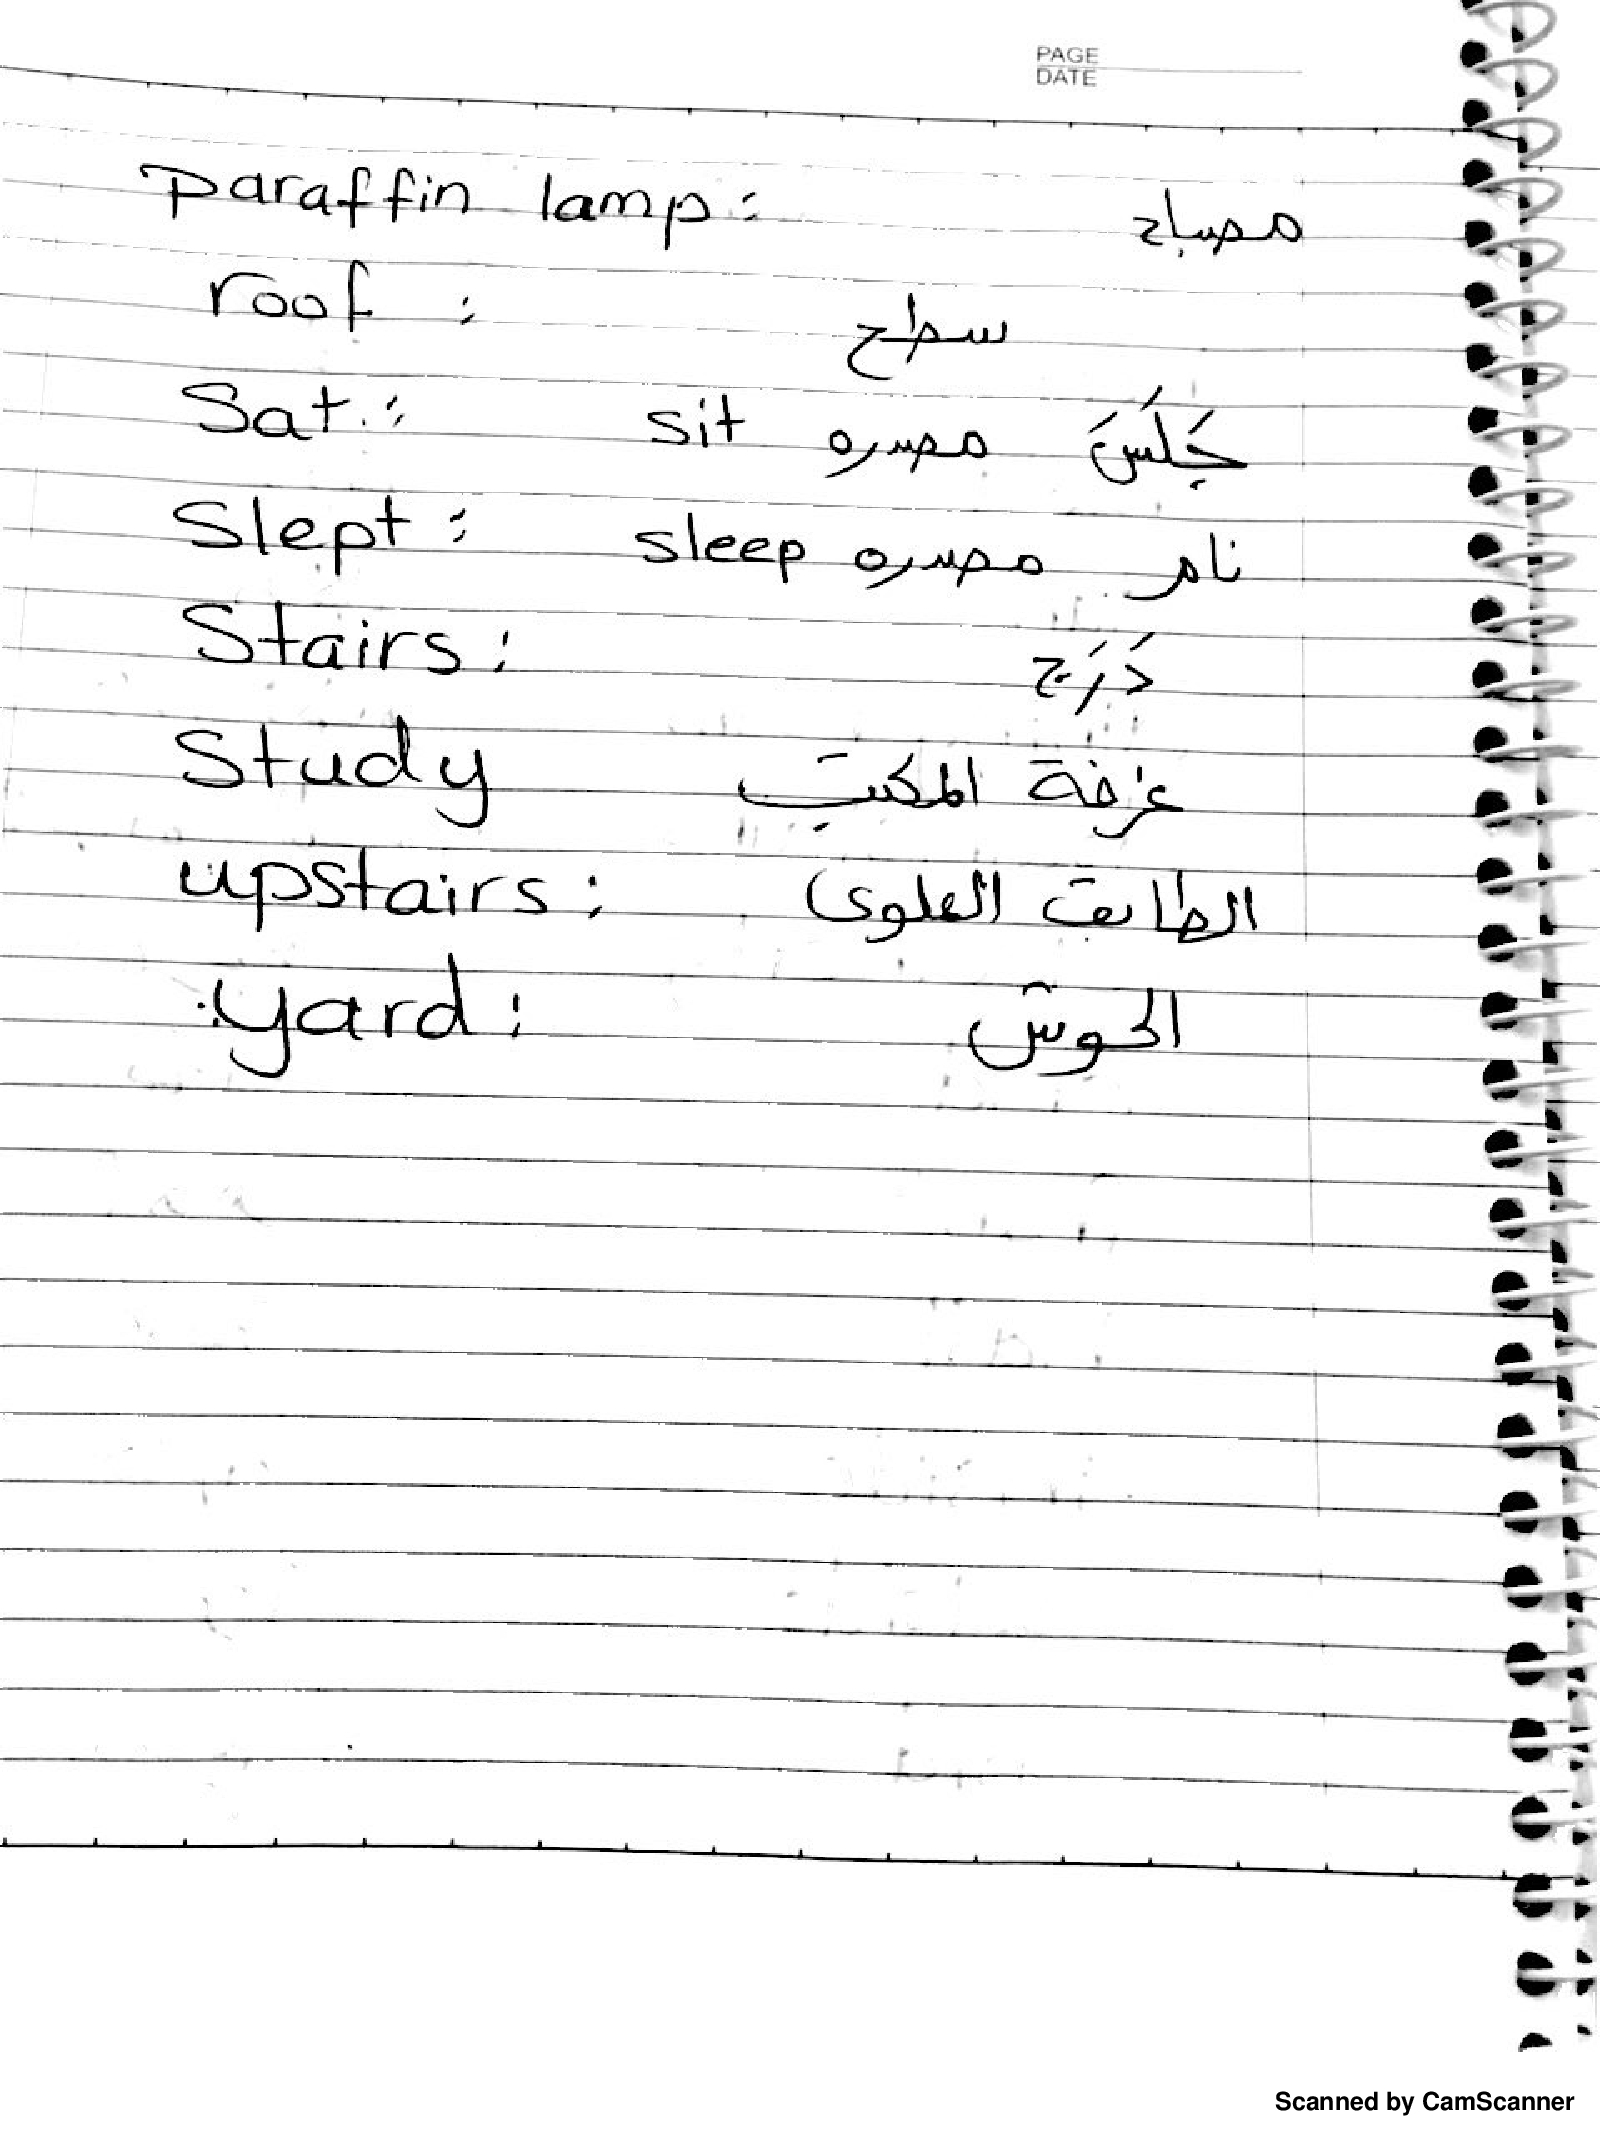 PAGE
DATE
paraffin lamp: مصباح
roof : سطح
Sat : جَلَسَ مصدره sit
Slept : نام مصدره sleep
Stairs : دَرَج
Study غرفة المكتب
upstairs : الطابق العلوى
yard : الحوش
Scanned by CamScanner